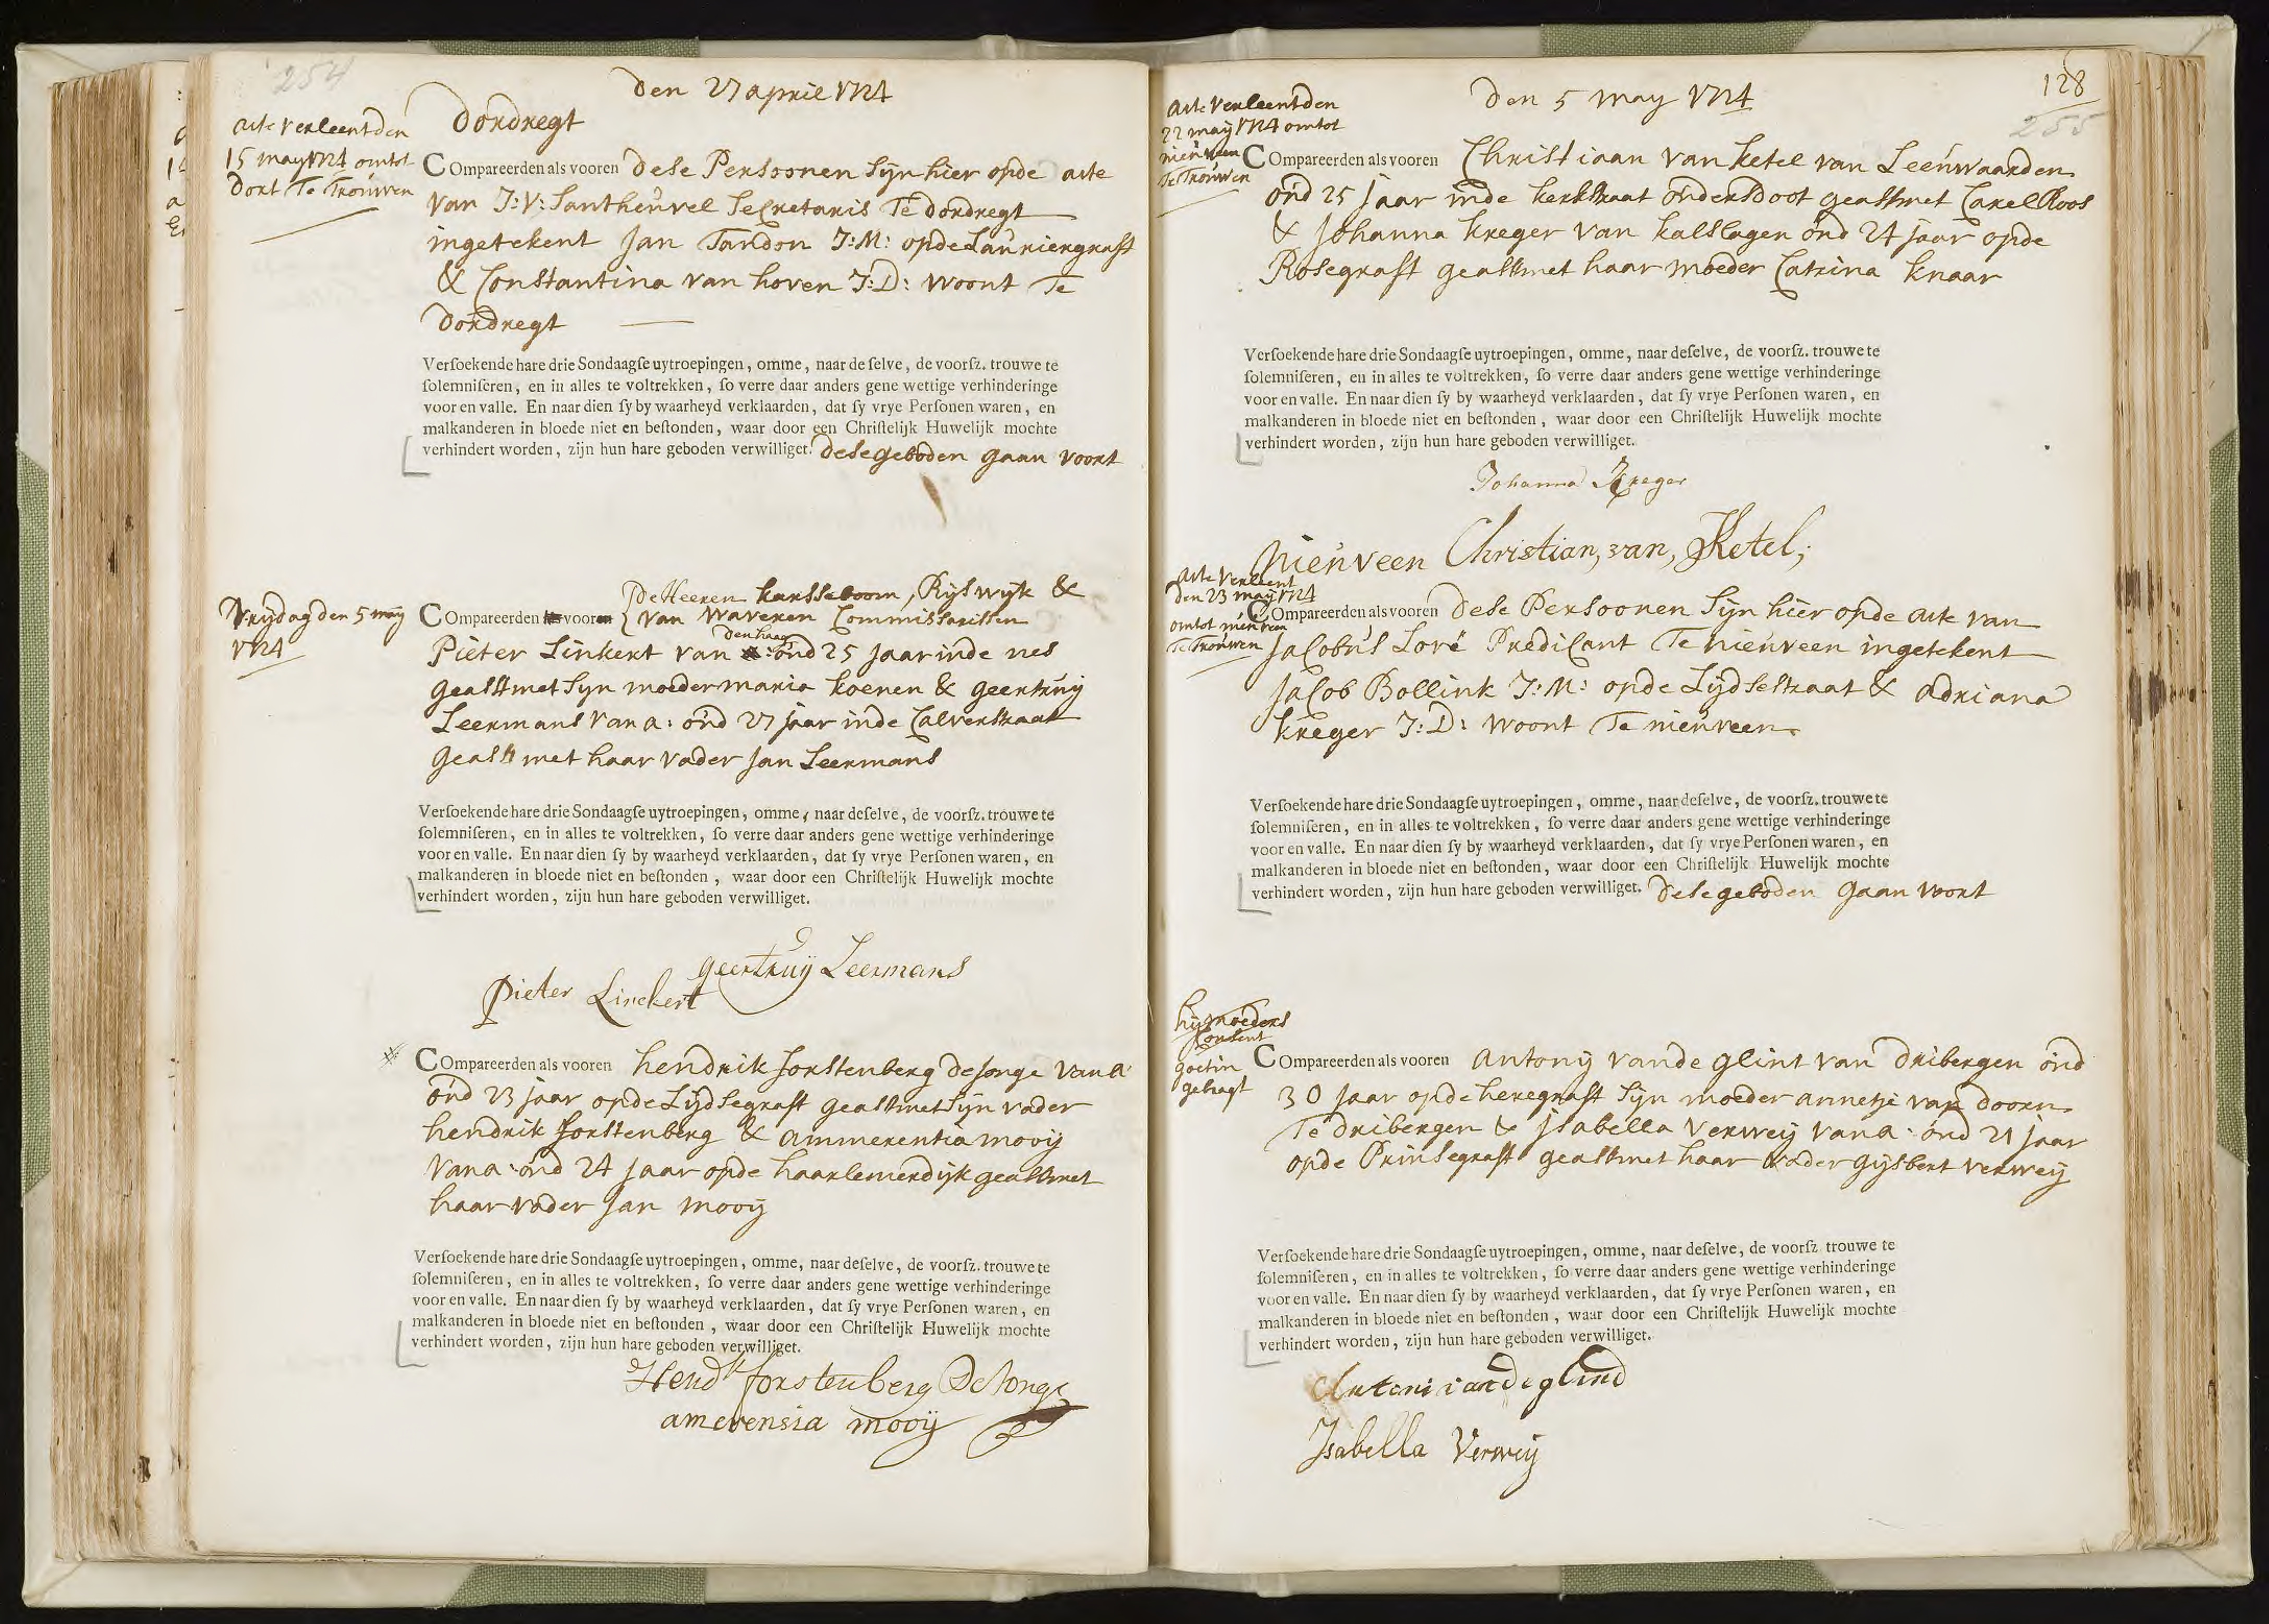 254
den 27 april 1724
acte verleent den
15 may 1724 om tot
dort te trouwen
Dordregt
COmpareerden als vooren dese Persoonen sijn hier op de acte
van J:V: Santheuvel Secretaris te dordregt
ingetekent Jan Tandon J:M: op de Lauriergraft
& Constantina van hoven J:D: woont te
dordregt
Verſoekende hare drie Sondaagſe uytroepingen, omme, naar de ſelve, de voorſz. trouwe te
ſolemniſeren, en in alles te voltrekken, ſo verre daar anders gene wettige verhinderinge
voor en valle. En naar dien ſy by waarheyd verklaarden, dat ſy vrye Perſonen waren, en
malkanderen in bloede niet en beſtonden, waar door een Chriſtelijk Huwelijk mochte
verhindert worden, zijn hun hare geboden verwilliget. dese geboden gaan voort
Vrijdag den 5 may
1724
De Heeren karsseboom, Rijswijk &
COmpareerden als vooren van Waveren Commissarissen
den haag
Pieter Linkert van a: oud 25 jaar inde nes
geast met sijn moeder maria koenen & geertruij
Leermans van a: oud 27 jaar inde Calverstraat
geast met haar vader Jan Leermans
Verſoekende hare drie Sondaagſe uytroepingen, omme, naar deſelve, de voorſz. trouwe te
ſolemniſeren, en in alles te voltrekken, ſo verre daar anders gene wettige verhinderinge
voor en valle. En naar dien ſy by waarheyd verklaarden, dat ſy vrye Perſonen waren, en
malkanderen in bloede niet en beſtonden, waar door een Chriſtelijk Huwelijk mochte
verhindert worden, zijn hun hare geboden verwilliget.
geertruij Leermans
Pieter Linckert
COmpareerden als vooren hendrik forstenberg de Jonge van a
oud 23 jaar op de Lijdsegraft geast met sijn vader
hendrik forstenberg & ammerentia mooij
van a: oud 24 jaar op de haarlemerdijk geast met
haar vader Jan mooij
Verſoekende hare drie Sondaagſe uytroepingen, omme, naar deſelve, de voorſz. trouwe te
ſolemniſeren, en in alles te voltrekken, ſo verre daar anders gene wettige verhinderinge
voor en valle. En naar dien ſy by waarheyd verklaarden, dat ſy vrye Perſonen waren, en
malkanderen in bloede niet en beſtonden, waar door een Chriſtelijk Huwelijk mochte
verhindert worden, zijn hun hare geboden verwilliget.
Hendk forstenberg De Jonge
amerensia mooij
128
255
den 5 may 1724
acte verleent den
22 maij 1724 om tot
nieuveen
te trouwen
COmpareerden als vooren Christiaan van ketel van Leeuwaarden
oud 25 jaar inde kerkstraat ouders doot geast met Carel Roos
& Johanna kreger van kalslagen oud 24 jaar op de
Rosegraft geast met haar moeder Catrina knaar
Verſoekende hare drie Sondaagſe uytroepingen, omme, naar deſelve, de voorſz. trouwe te
ſolemniſeren, en in alles te voltrekken, ſo verre daar anders gene wettige verhinderinge
voor en valle. En naar dien ſy by waarheyd verklaarden, dat ſy vrye Perſonen waren, en
malkanderen in bloede niet en beſtonden, waar door een Chriſtelijk Huwelijk mochte
verhindert worden, zijn hun hare geboden verwilliget.
Johanna Kreger
Christian, van, Ketel;
Nieuveen
acte verleent
den 23 may 1724
om tot nieuveen
te trouwen
COmpareerden als vooren dese Persoonen sijn hier op de acte van
Jacobus Loré Predicant te nieuveen ingetekent
Jacob Bollink J:M: op de Lijdsestraat & adriana
kreger J:D: woont te nieuveen
Verſoekende hare drie Sondaagſe uytroepingen, omme, naar deſelve, de voorſz. trouwe te
ſolemniſeren, en in alles te voltrekken, ſo verre daar anders gene wettige verhinderinge
voor en valle. En naar dien ſy by waarheyd verklaarden, dat ſy vrye Perſonen waren, en
malkanderen in bloede niet en beſtonden, waar door een Chriſtelijk Huwelijk mochte
verhindert worden, zijn hun hare geboden verwilliget. dese geboden gaan voort
hij moeders
Consent
goet in
gebragt
COmpareerden als vooren antonij vande glint van dribergen oud
30 jaar op de heregraft sijn moeder annetje van doorn
te dribergen & jsabella verweij van a: oud 21 jaar
op de Prinsegraft geast met haar vader gijsbert verweij
Verſoekende hare drie Sondaagſe uytroepingen, omme, naar deſelve, de voorſz trouwe te
ſolemniſeren, en in alles te voltrekken, ſo verre daar anders gene wettige verhinderinge
voor en valle. En naar dien ſy by waarheyd verklaarden, dat ſy vrye Perſonen waren, en
malkanderen in bloede niet en beſtonden, waar door een Chriſtelijk Huwelijk mochte
verhindert worden, zijn hun hare geboden verwilliget.
Antoni van de glind
Jsabella Verweij